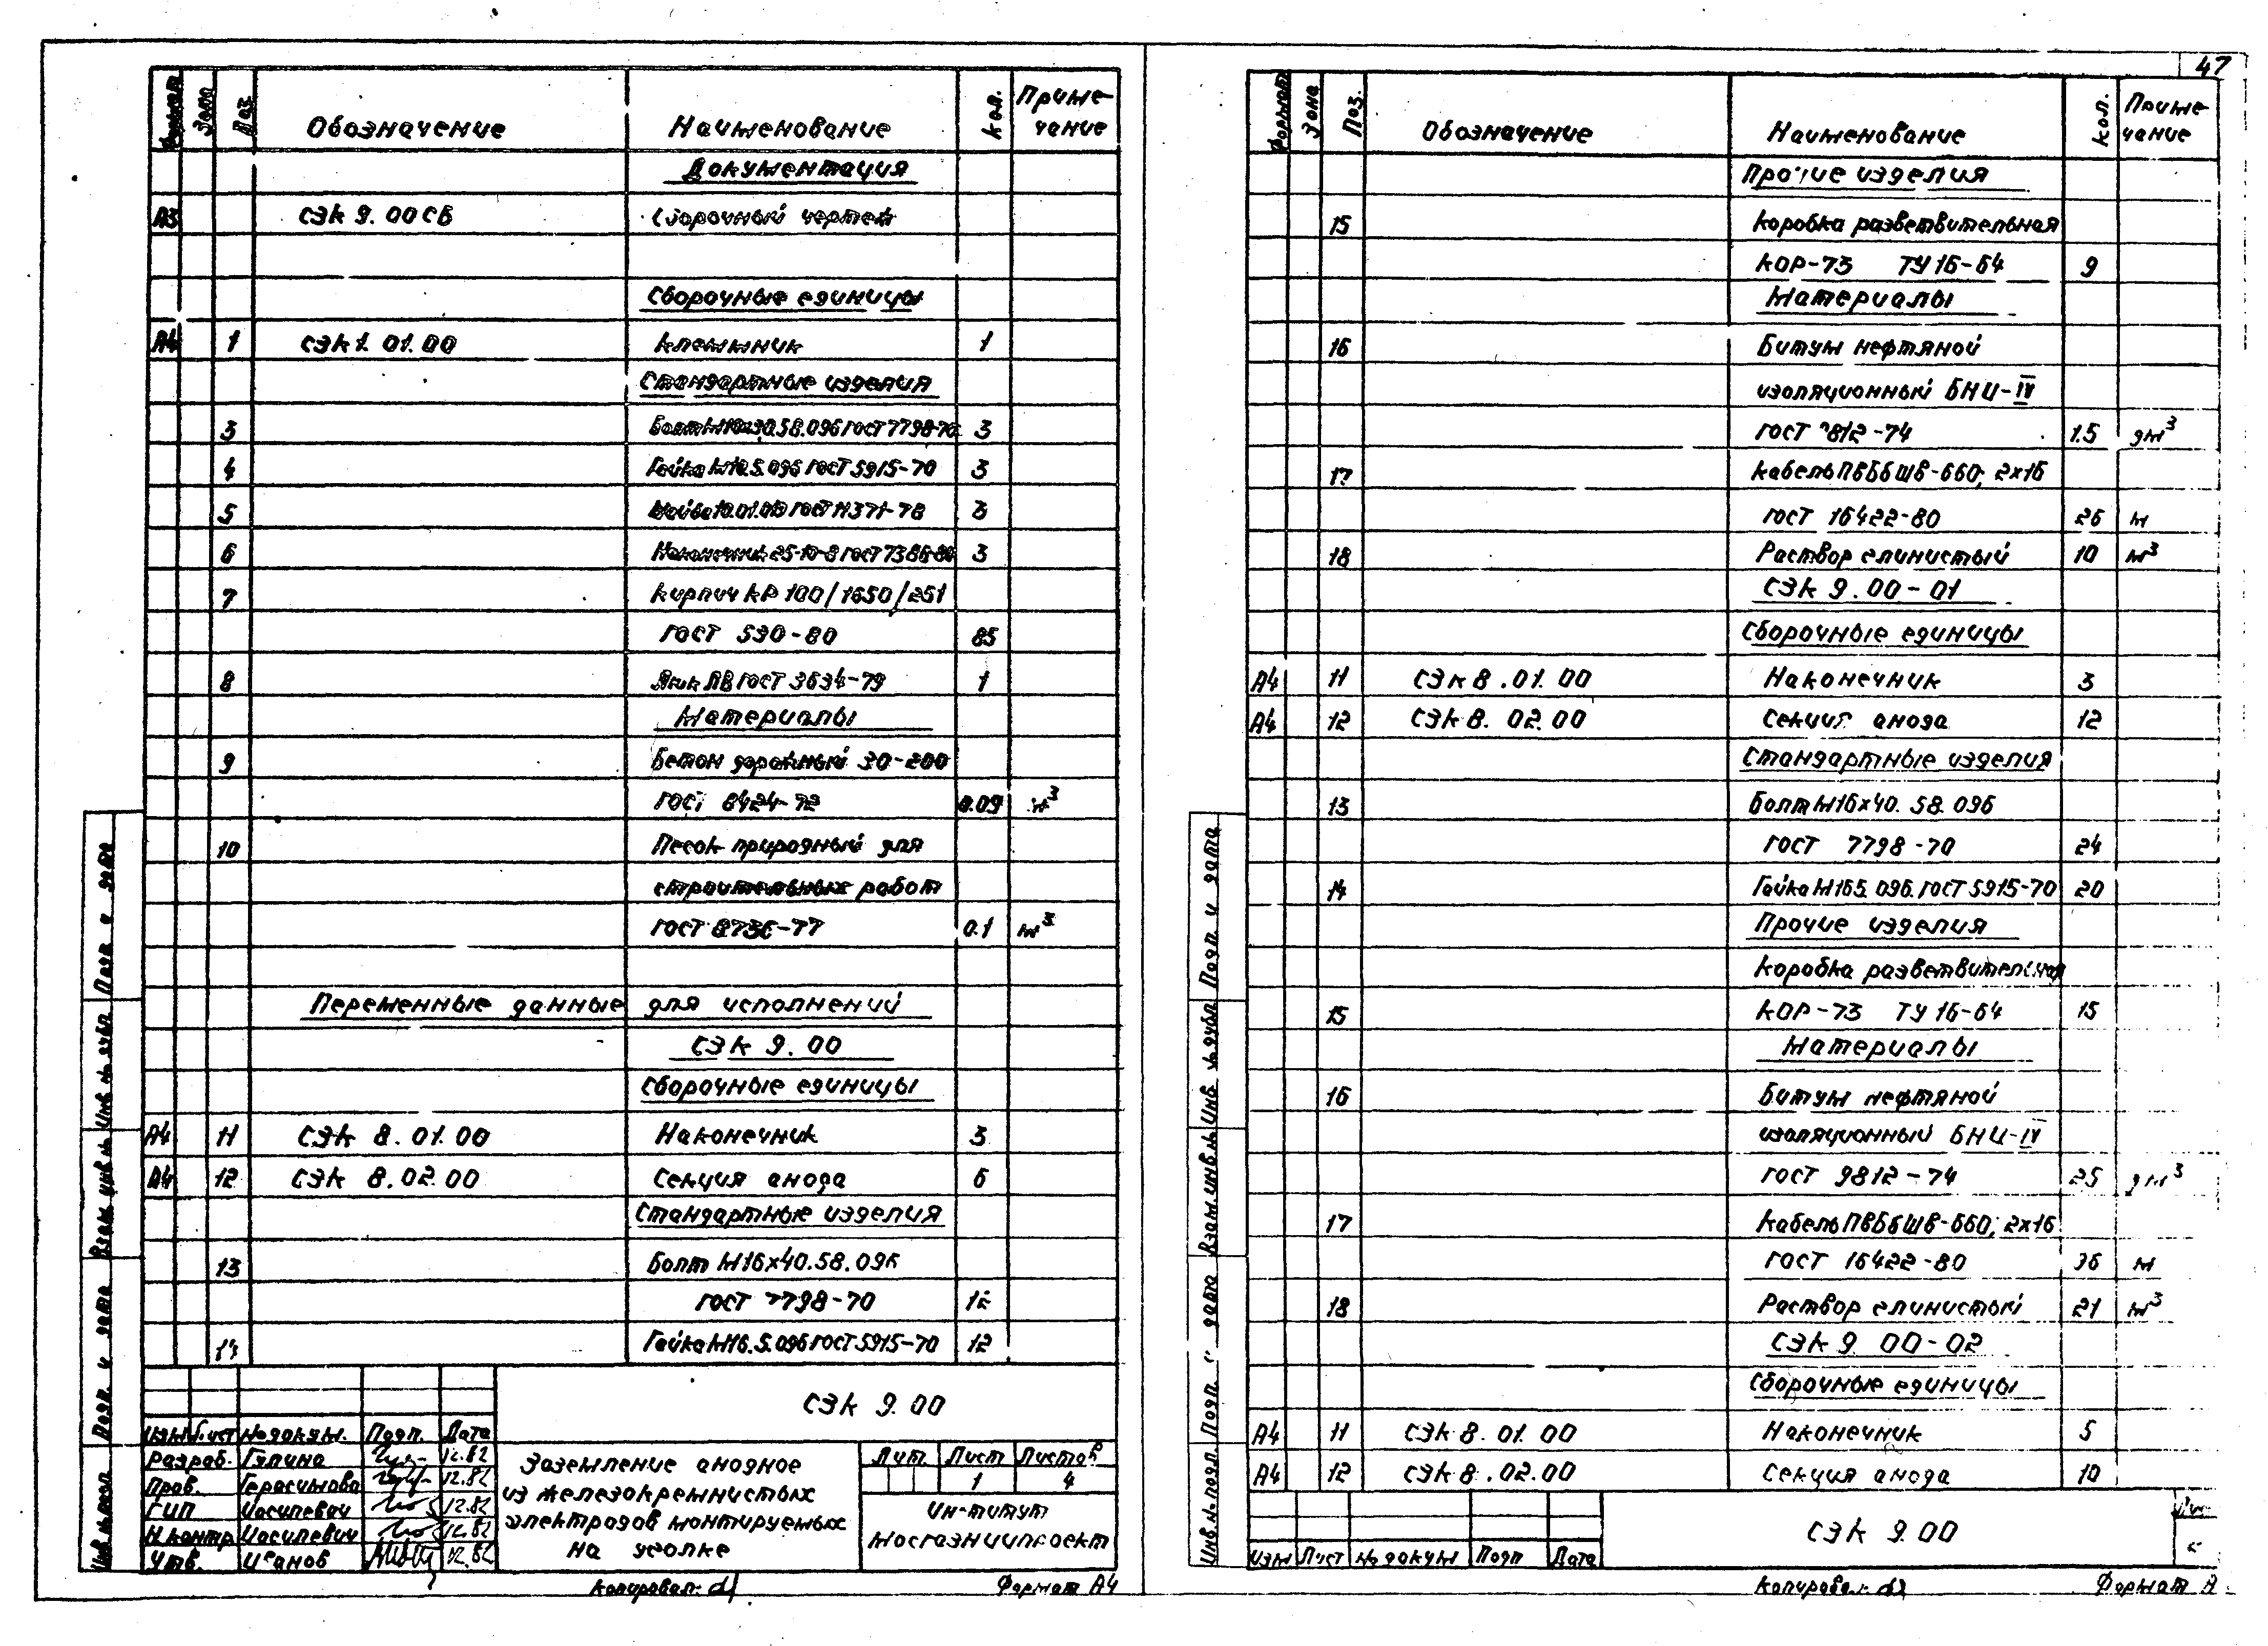 47
Формат Зона Поз. Обозначение Наименование Кол. Приме-
чание
Документация
А3 СЗК 9.00 СБ Сборочный чертеж
Сборочные единицы
А4 1 СЗК 1.01.00 Клеммник 1
Стандартные изделия
3 Болт М10х30.58.096 ГОСТ 7798-70 3
4 Гайка М10.5.096 ГОСТ 5915-70 3
5 Шайба 10.01.019 ГОСТ 11371-78 3
6 Наконечник 25-10-8 ГОСТ 7386-80 3
7 Кирпич КР 100/1650/251
ГОСТ 530-80 85
8 Люк ЛВ ГОСТ 3634-79 1
Материалы
9 Бетон дорожный 30-200
ГОСТ 8424-72 0.09 м³
10 Песок природный для
строительных работ
ГОСТ 8736-77 0.1 м³
Переменные данные для исполнений
СЗК 9.00
Сборочные единицы
А4 11 СЗК 8.01.00 Наконечник 3
А4 12 СЗК 8.02.00 Секция анода 6
Стандартные изделия
13 Болт М16х40.58.096
ГОСТ 7798-70 12
14 Гайка М16.5.096 ГОСТ 5915-70 12
СЗК 9.00
Изм Лист № докум. Подп. Дата
Разраб. Гулина 12.82
Пров. Герасимова 12.82
ГИП Иосилевич 12.82
Н.контр Иосилевич 12.82
Утв. Иванов 12.82
Заземление анодное
из железокремнистых
электродов монтируемых
на уголке
Лит. Лист Листов
1 4
Ин-титут
Мосгазниипроект
Копировал: Формат А4
Инв № подл Подп. и дата Взам инв № Инв № дубл Подп и дата
Формат Зона Поз. Обозначение Наименование Кол. Приме-
чание
Прочие изделия
15 Коробка разветвительная
КОР-73 ТУ 16-64 9
Материалы
16 Битум нефтяной
изоляционный БНИ-IV
ГОСТ 9812-74 1.5 дм³
17 Кабель ПВБбШВ-660; 2х16
ГОСТ 16422-80 26 м
18 Раствор глинистый 10 м³
СЗК 9.00-01
Сборочные единицы
А4 11 СЗК 8.01.00 Наконечник 3
А4 12 СЗК 8.02.00 Секция анода 12
Стандартные изделия
13 Болт М16х40.58.096
ГОСТ 7798-70 24
14 Гайка М16.5.096 ГОСТ 5915-70 20
Прочие изделия
Коробка разветвительная
15 КОР-73 ТУ 16-64 15
Материалы
16 Битум нефтяной
изоляционный БНИ-IV
ГОСТ 9812-74 25 дм³
17 Кабель ПВБбШВ-660; 2х16
ГОСТ 16422-80 36 м
18 Раствор глинистый 21 м³
СЗК 9.00-02
Сборочные единицы
А4 11 СЗК 8.01.00 Наконечник 5
А4 12 СЗК 8.02.00 Секция анода 10
СЗК 9.00
Изм Лист № докум Подп Дата
Копировал: Формат А
Инв № подл. Подп. и дата Взам. инв № Инв № дубл Подп. и дата